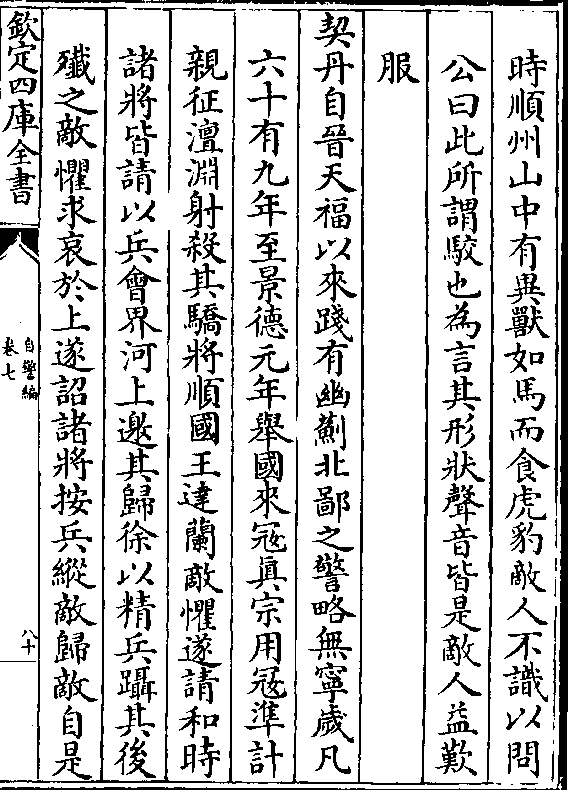 時順州山中有異獸如馬而食虎豹敵人不識以問
公曰此所謂駮也為言其形狀聲音皆是敵人益歎
服
契丹自晉天福以來踐有幽薊北鄙之警略無寧歲凡
六十有九年至景德元年舉國來寇眞宗用寇準計
親征澶淵射殺其驕將順國王達蘭敵懼遂請和時
諸將皆請以兵會界河上邀其歸徐以精兵躡其後
殲之敵懼求哀於上遂詔諸將按兵縱敵歸敵自是
欽定四庫全書
自警編
卷七
八十